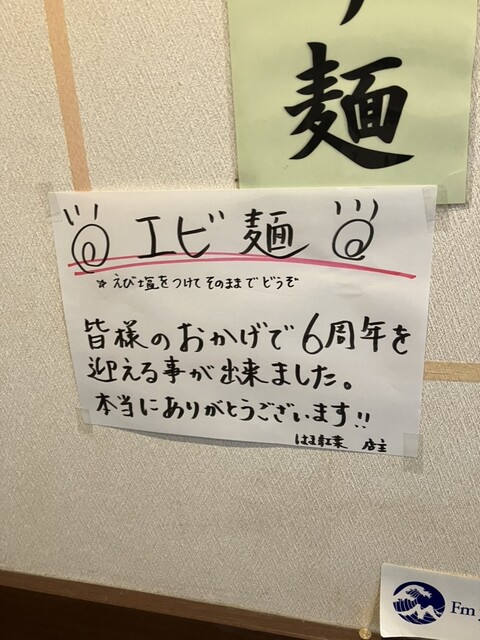 麺
エビ麺
※えび塩をつけてそのままでどうぞ
皆様のおかげで6周年を
迎える事が出来ました。
本当にありがとうございます!!
店主
Fm